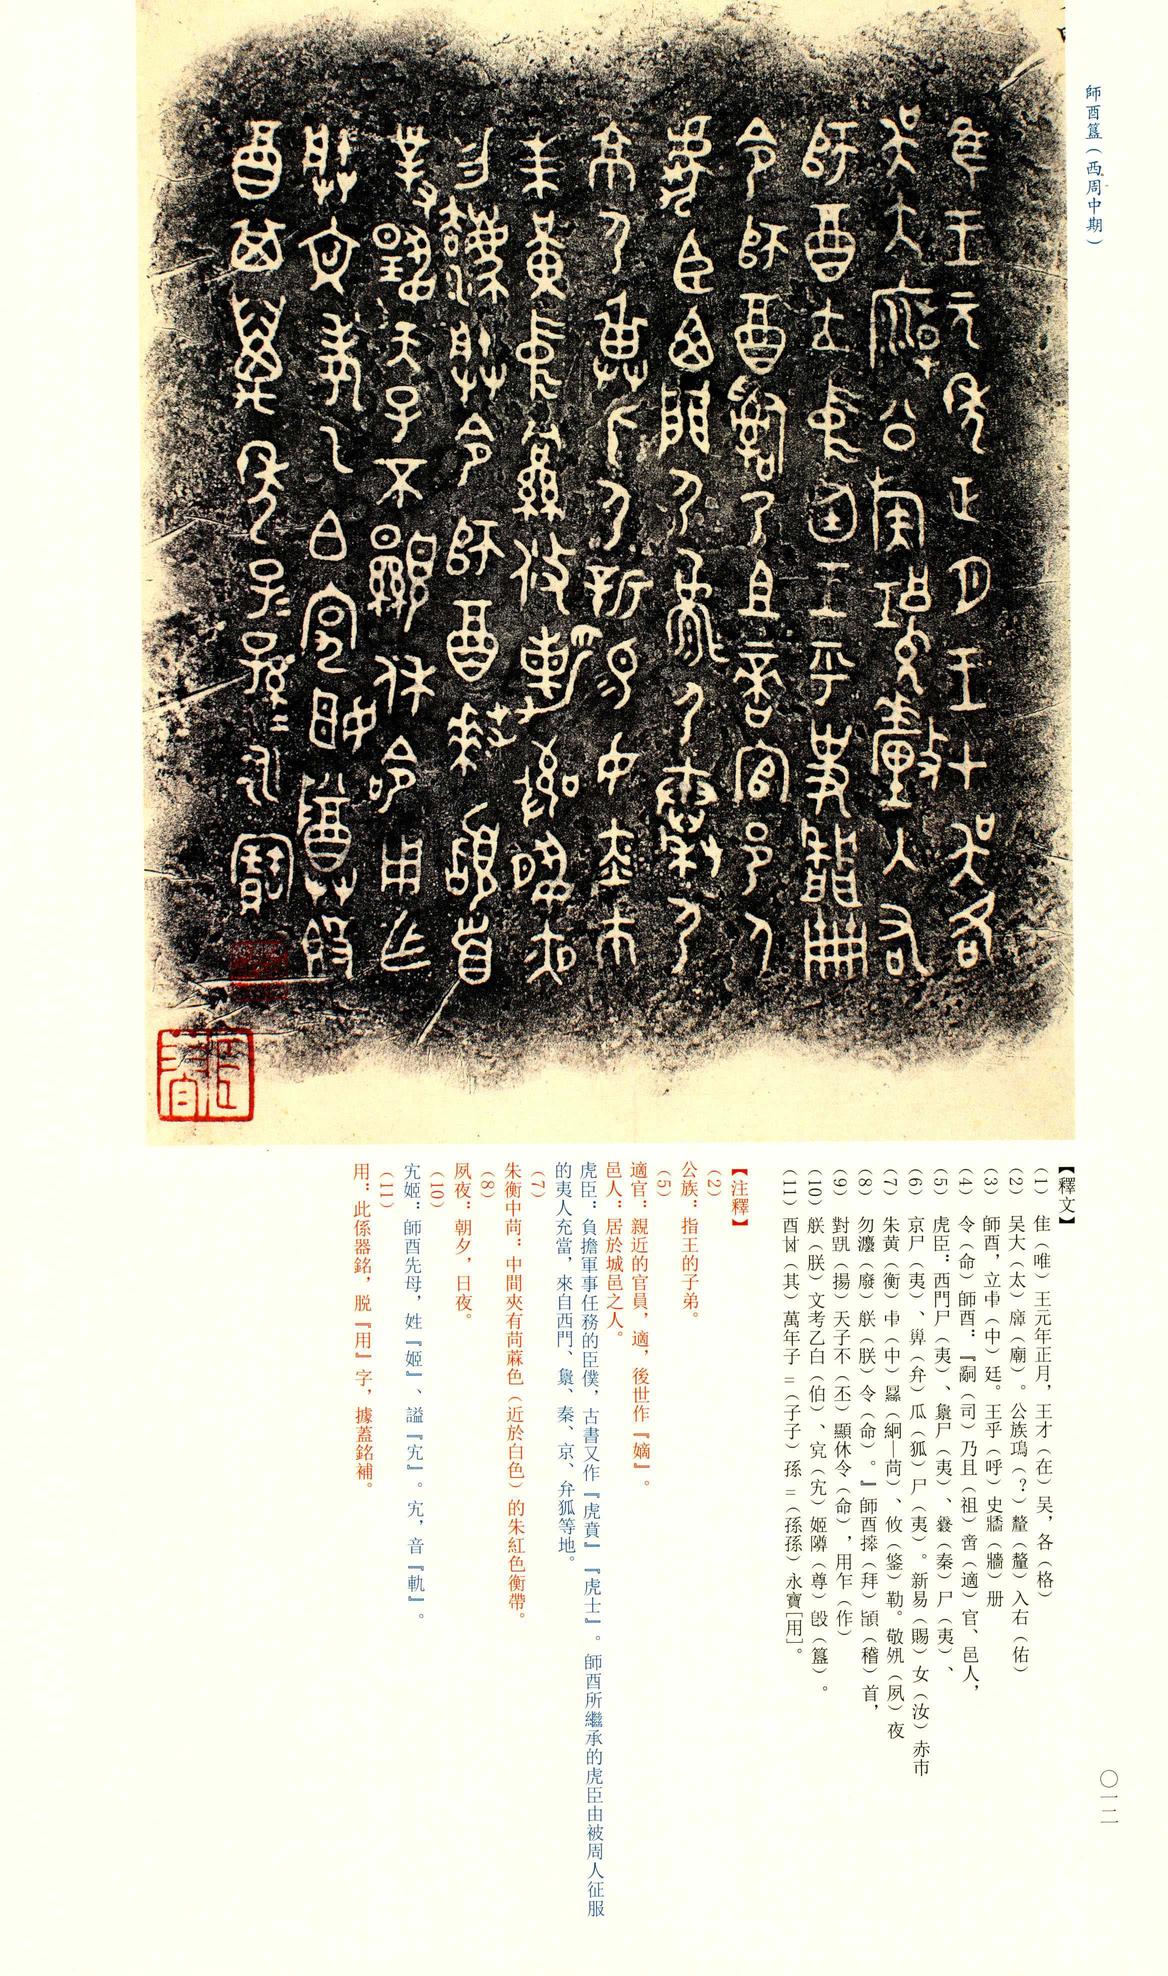 師酉簋（西周中期）
【釋文】
(1) 隹（唯）王元年正月，王才（在）吴，各（格）
(2) 吴大（太）廟（廟）。公族（？）釐（釐）入右（佑）
(3) 師酉，立中（中）廷。王乎（呼）史牆（牆）册
(4) 令（命）師酉：『嗣（司）乃且（祖）啻（適）官、邑人，
(5) 虎臣：西門尸（夷）、尸（夷）、秦（秦）尸（夷）、
(6) 京尸（夷）、畀（弁）瓜（狐）尸（夷）。新易（賜）女（汝）赤巿
(7) 朱黄（衡）中（中）（絅—苘）、攸（鋚）勒。敬夙（夙）夜
(8) 勿灋（廢）朕（朕）令（命）。』師酉（拜）（稽）首，
(9) 對（揚）天子不（丕）顯休令（命），用乍（作）
(10) 朕（朕）文考乙白（伯）、宄（宄）姬障（尊）𣪘（簋）。
(11) 酉（其）萬年子=（子子）孫=（孫孫）永寶［用］。
【注釋】
(2)
公族：指王的子弟。
(5)
適官：親近的官員，適，後世作『嫡』。
邑人：居於城邑之人。
虎臣：負擔軍事任務的臣僕，古書又作『虎賁』『虎士』。師酉所繼承的虎臣由被周人征服
的夷人充當，來自西門、、秦、京、弁狐等地。
(7)
朱衡中苘：中間夾有苘蔴色（近於白色）的朱紅色衡帶。
(8)
夙夜：朝夕，日夜。
(10)
宄姬：師酉先母，姓『姬』、謚『宄』。宄，音『軌』。
(11)
用：此係器銘，脱『用』字，據蓋銘補。
〇一二